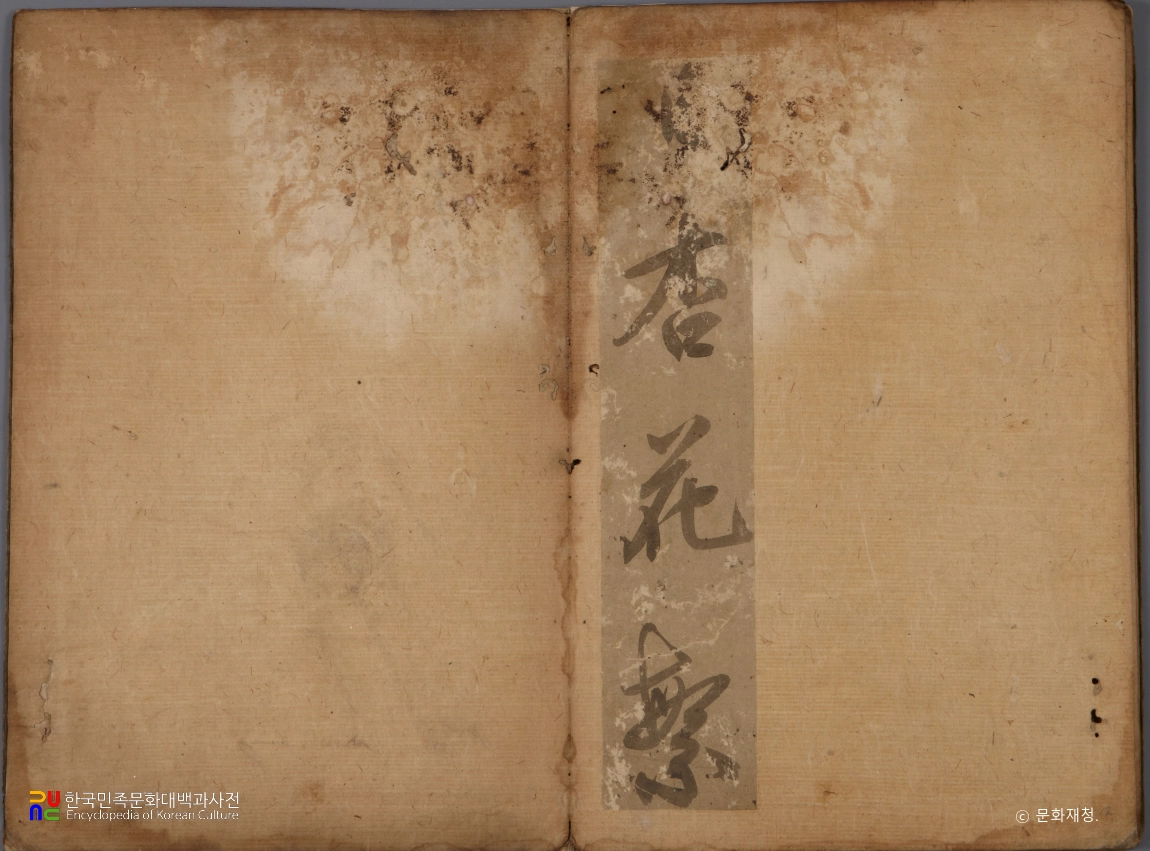 杏花繁
한국민족문화대백과사전
Encyclopedia of Korean Culture
ⓒ 문화재청.